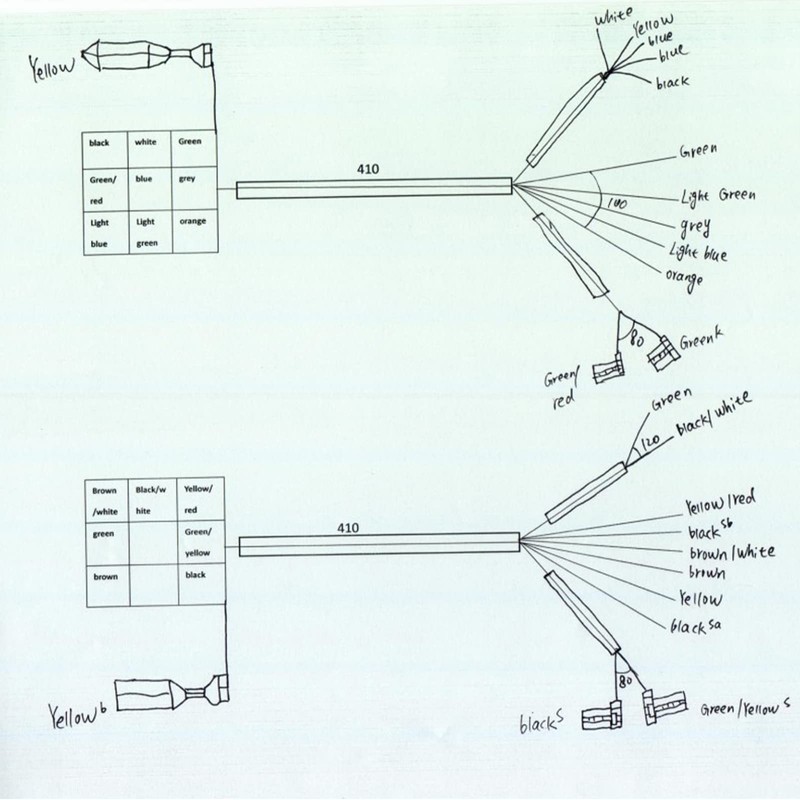 white
Yellow
blue
blue
black
Yellow
black white Green
Green/
red
blue grey
Light
blue
Light
green
orange
410
Green
Light Green
grey
Light blue
orange
100
80
Green/
red
Greenk
Green
black/white
120
Brown
/white
Black/w
hite
Yellow/
red
green
Green/
yellow
brown black
410
Yellow/red
black sb
brown/white
brown
Yellow
black sa
80
Yellow b
black s
Green/Yellow s